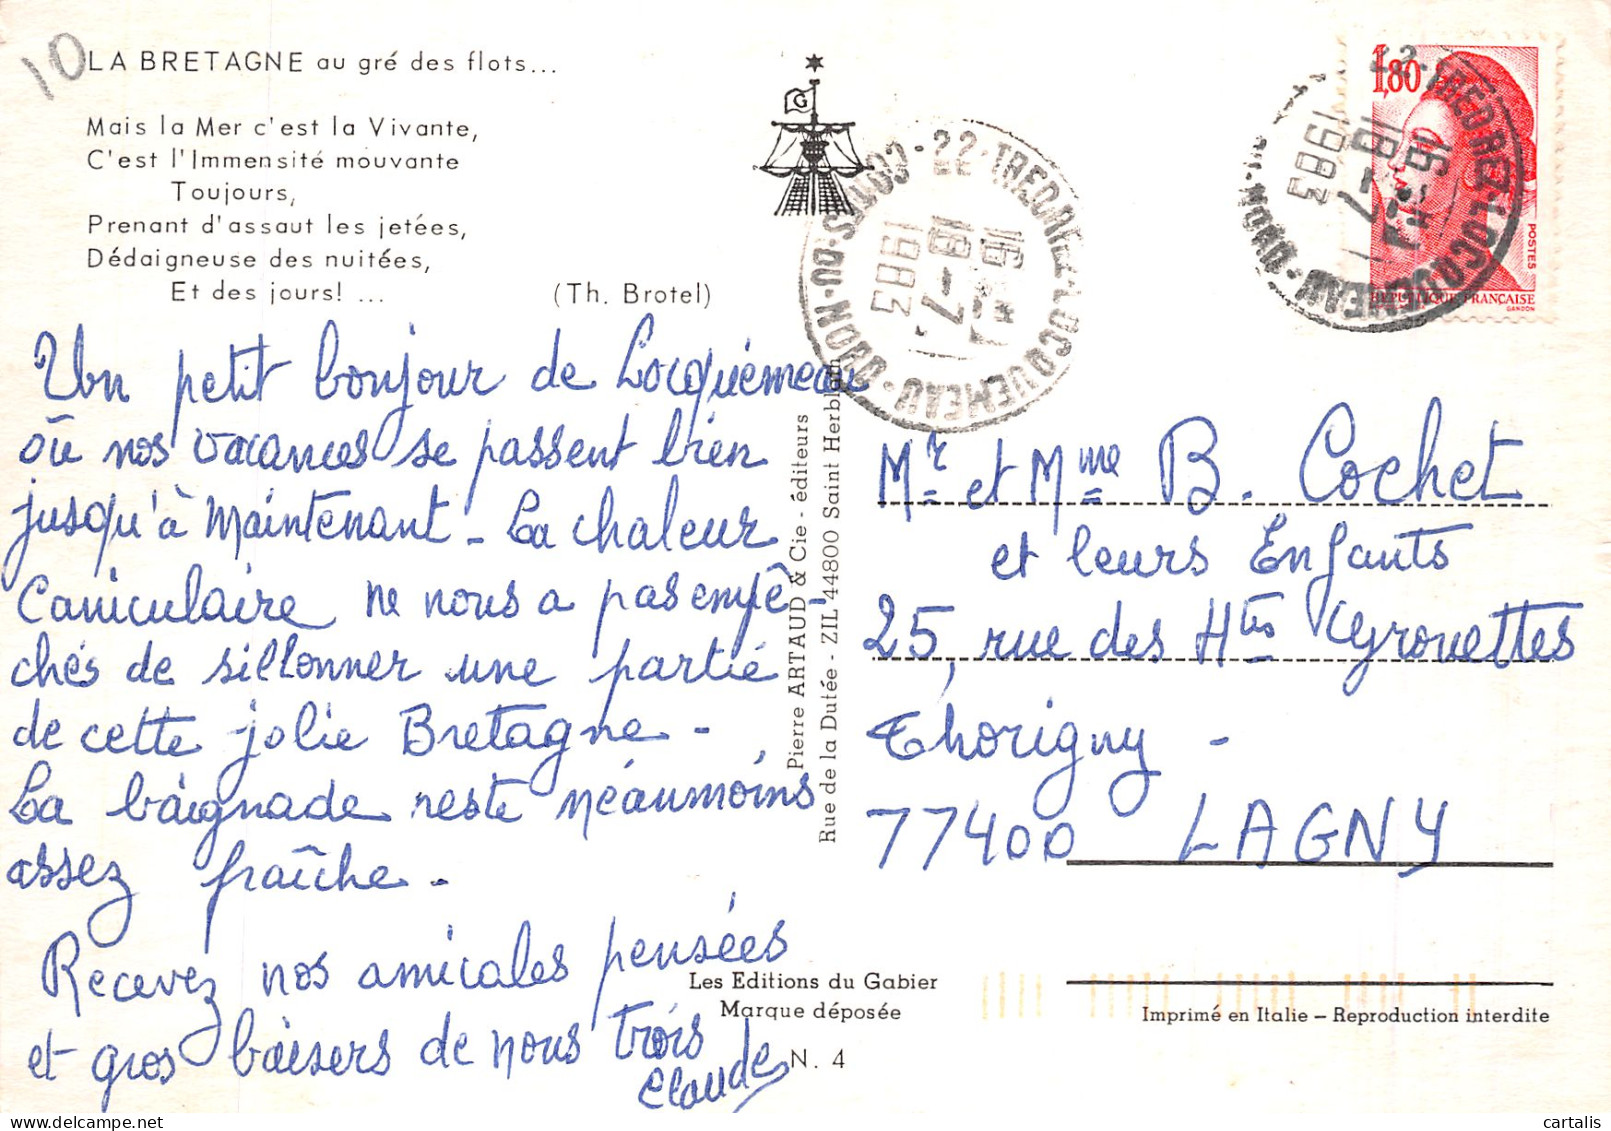 10
LA BRETAGNE au gré des flots...
Mais la Mer c'est la Vivante,
C'est l'Immensité mouvante
Toujours,
Prenant d'assaut les jetées,
Dédaigneuse des nuitées,
Et des jours! ...
(Th. Brotel)
G
22-TREDREZ-LOCQUEMEAU
COTES-DU-NORD
16 H
18-7
1983
1,80
22-TREDREZ-LOCQUEMEAU
DU-NORD
16 H
18-7
1983
POSTES
REPUBLIQUE FRANÇAISE
GANDON
Un petit bonjour de Locquémeau
où nos vacances se passent bien
jusqu'à maintenant - La chaleur
Caniculaire ne nous a pas empê-
chés de sillonner une partie
de cette jolie Bretagne -
La baignade reste néaumoins
assez fraîche -
Recevez nos amicales pensées
et gros baisers de nous trois
Claude
Pierre ARTAUD & Cie - éditeurs
Rue de la Dutée - ZIL 44800 Saint Herblain
Mr et Mme B. Cochet
et leurs Enfants
25, rue des Htes Gyrouettes
Thorigny -
77400 LAGNY
Les Editions du Gabier
Marque déposée
N. 4
Imprimé en Italie - Reproduction interdite
cartalis
delcampe.net